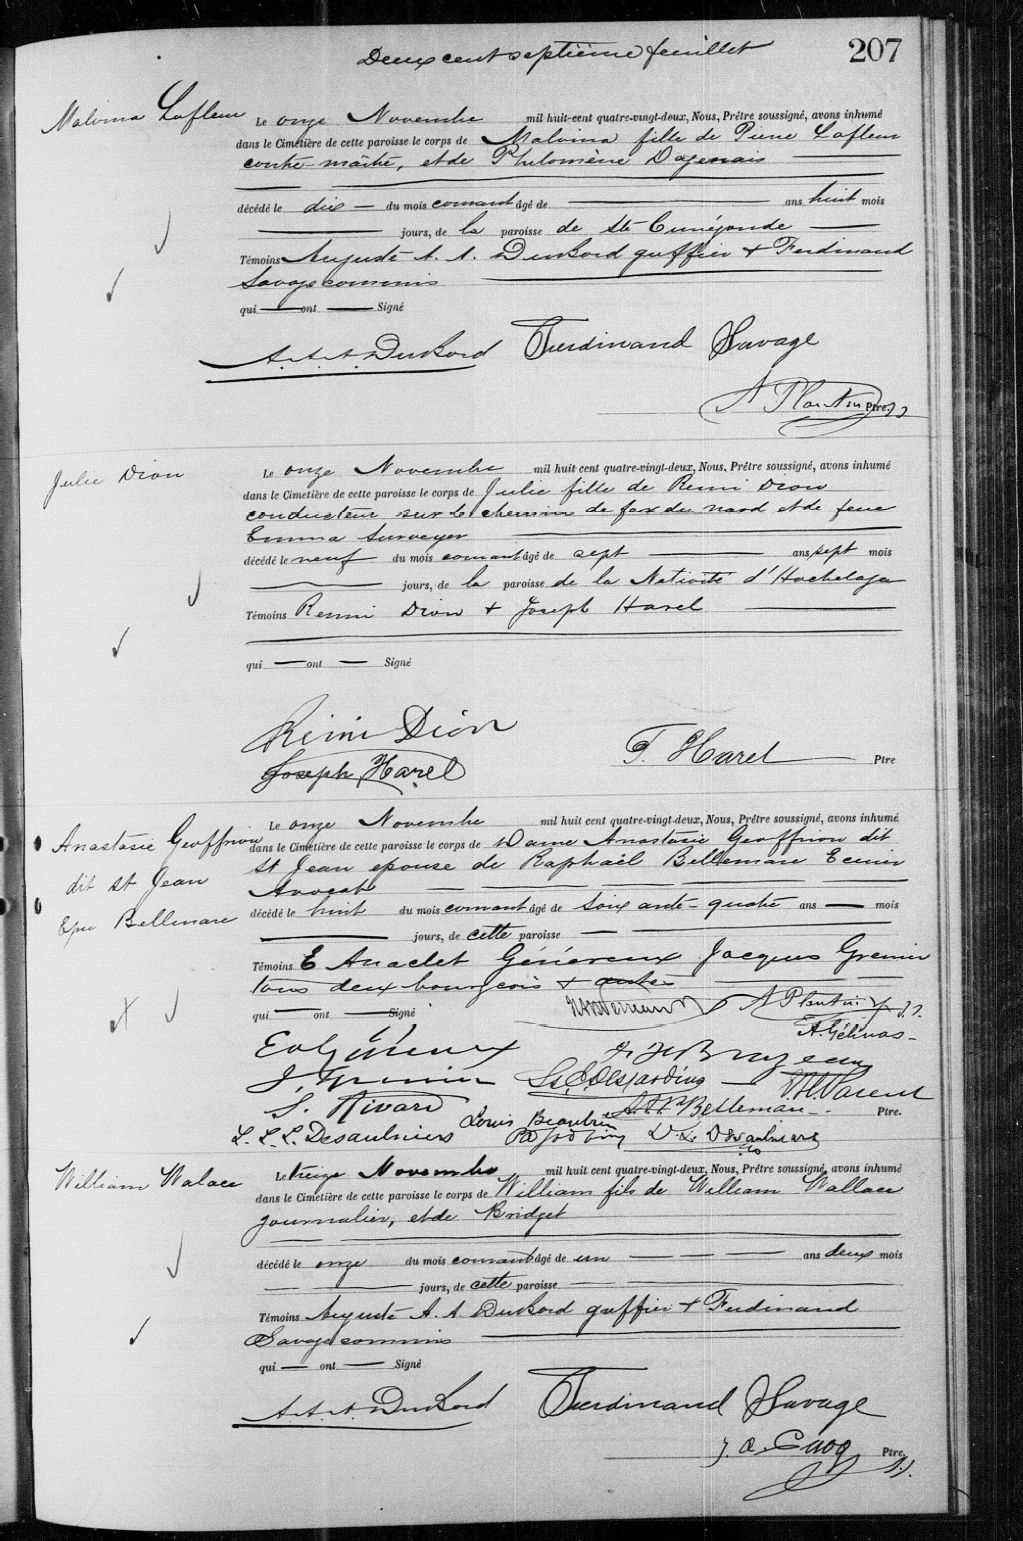 Deux cent septième feuillet 207
Malvina Lafleur
Le onze Novembre mil huit-cent quatre-vingt-deux, Nous, Prêtre soussigné, avons inhumé
dans le Cimetière de cette paroisse le corps de Malvina fille de Pierre Lafleur
contre-maître, et de Philomène Dagenais
décédé le dix du mois courant âgé de ans huit mois
jours, de la paroisse de Ste Cunégonde
Témoins Auguste A. A. DuBord greffier & Ferdinand
Savage commis
qui ont Signé
A. A. A. DuBord Ferdinand Savage
A Plantin Ptre
Julie Dion
Le onze Novembre mil huit cent quatre-vingt-deux, Nous, Prêtre soussigné, avons inhumé
dans le Cimetière de cette paroisse le corps de Julie fille de Remi Dion
conducteur sur le chemin de fer du nord et de feue
Emma Surveyer
décédé le neuf du mois courant âgé de sept ans sept mois
jours, de la paroisse de la Nativité d'Hochelaga
Témoins Remi Dion & Joseph Harel
qui ont Signé
Rémi Dion
F. Harel Ptre
Joseph Harel
Anastasie Geoffrion
dit St Jean
Epse Bellemare
Le onze Novembre mil huit-cent quatre-vingt-deux, Nous, Prêtre soussigné, avons inhumé
dans le Cimetière de cette paroisse le corps de Dame Anastasie Geoffrion dit
St Jean epouse de Raphaël Bellemare Ecuier
Avocat
décédé le huit du mois courant âgé de soixante-quatre ans mois
jours, de cette paroisse
Témoins E Anaclet Généreux Jacques Grenier
tous deux bourgeois & autres
qui ont Signé
A Plantin
A. Gélinas
E A Généreux
J. Grenier L. E. Desjardins Parent
S. Rivard Bellemare Ptre.
L. L. L. Desaulniers Louis Beaubien
William Walace
Le treize Novembre mil huit cent quatre-vingt-deux, Nous, Prêtre soussigné, avons inhumé
dans le Cimetière de cette paroisse le corps de William fils de William Wallace
journalier, et de Bridget
décédé le onze du mois courant âgé de un ans deux mois
jours, de cette paroisse
Témoins Auguste A. A DuBord greffier & Ferdinand
Savage commis
qui ont Signé
A. A. A. DuBord Ferdinand Savage
J. A. Cuoq Ptre.